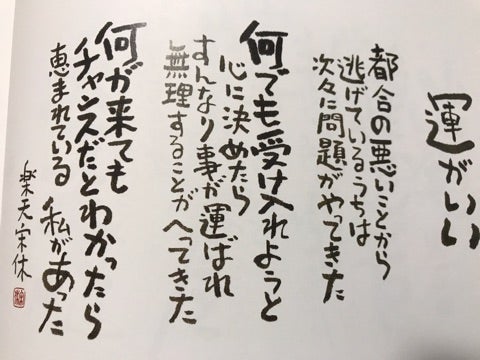 運がいい
都合の悪いことから
逃げているうちは
次々に問題がやってきた
何でも受け入れようと
心に決めたら
すんなり事が運ばれ
無理することがへってきた
何が来ても
チャンスだとわかったら
恵まれている 私があった
楽天宋休